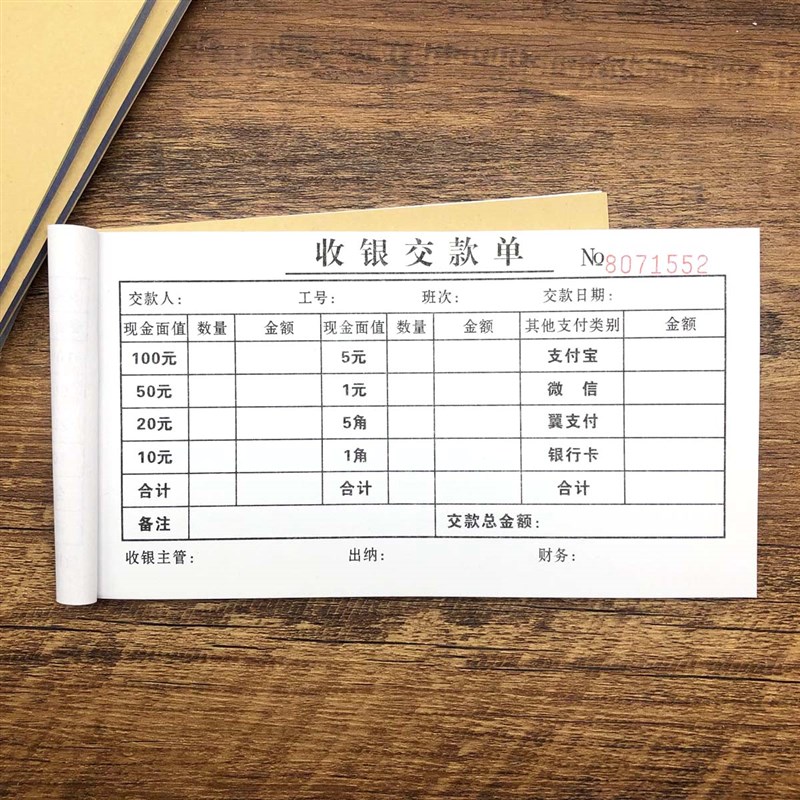 收银交款单 №8071552
交款人： 工号： 班次： 交款日期：
现金面值 数量 金额 现金面值 数量 金额 其他支付类别 金额
100元 5元 支付宝
50元 1元 微 信
20元 5角 翼支付
10元 1角 银行卡
合计 合计 合计
备注 交款总金额：
收银主管： 出纳： 财务：